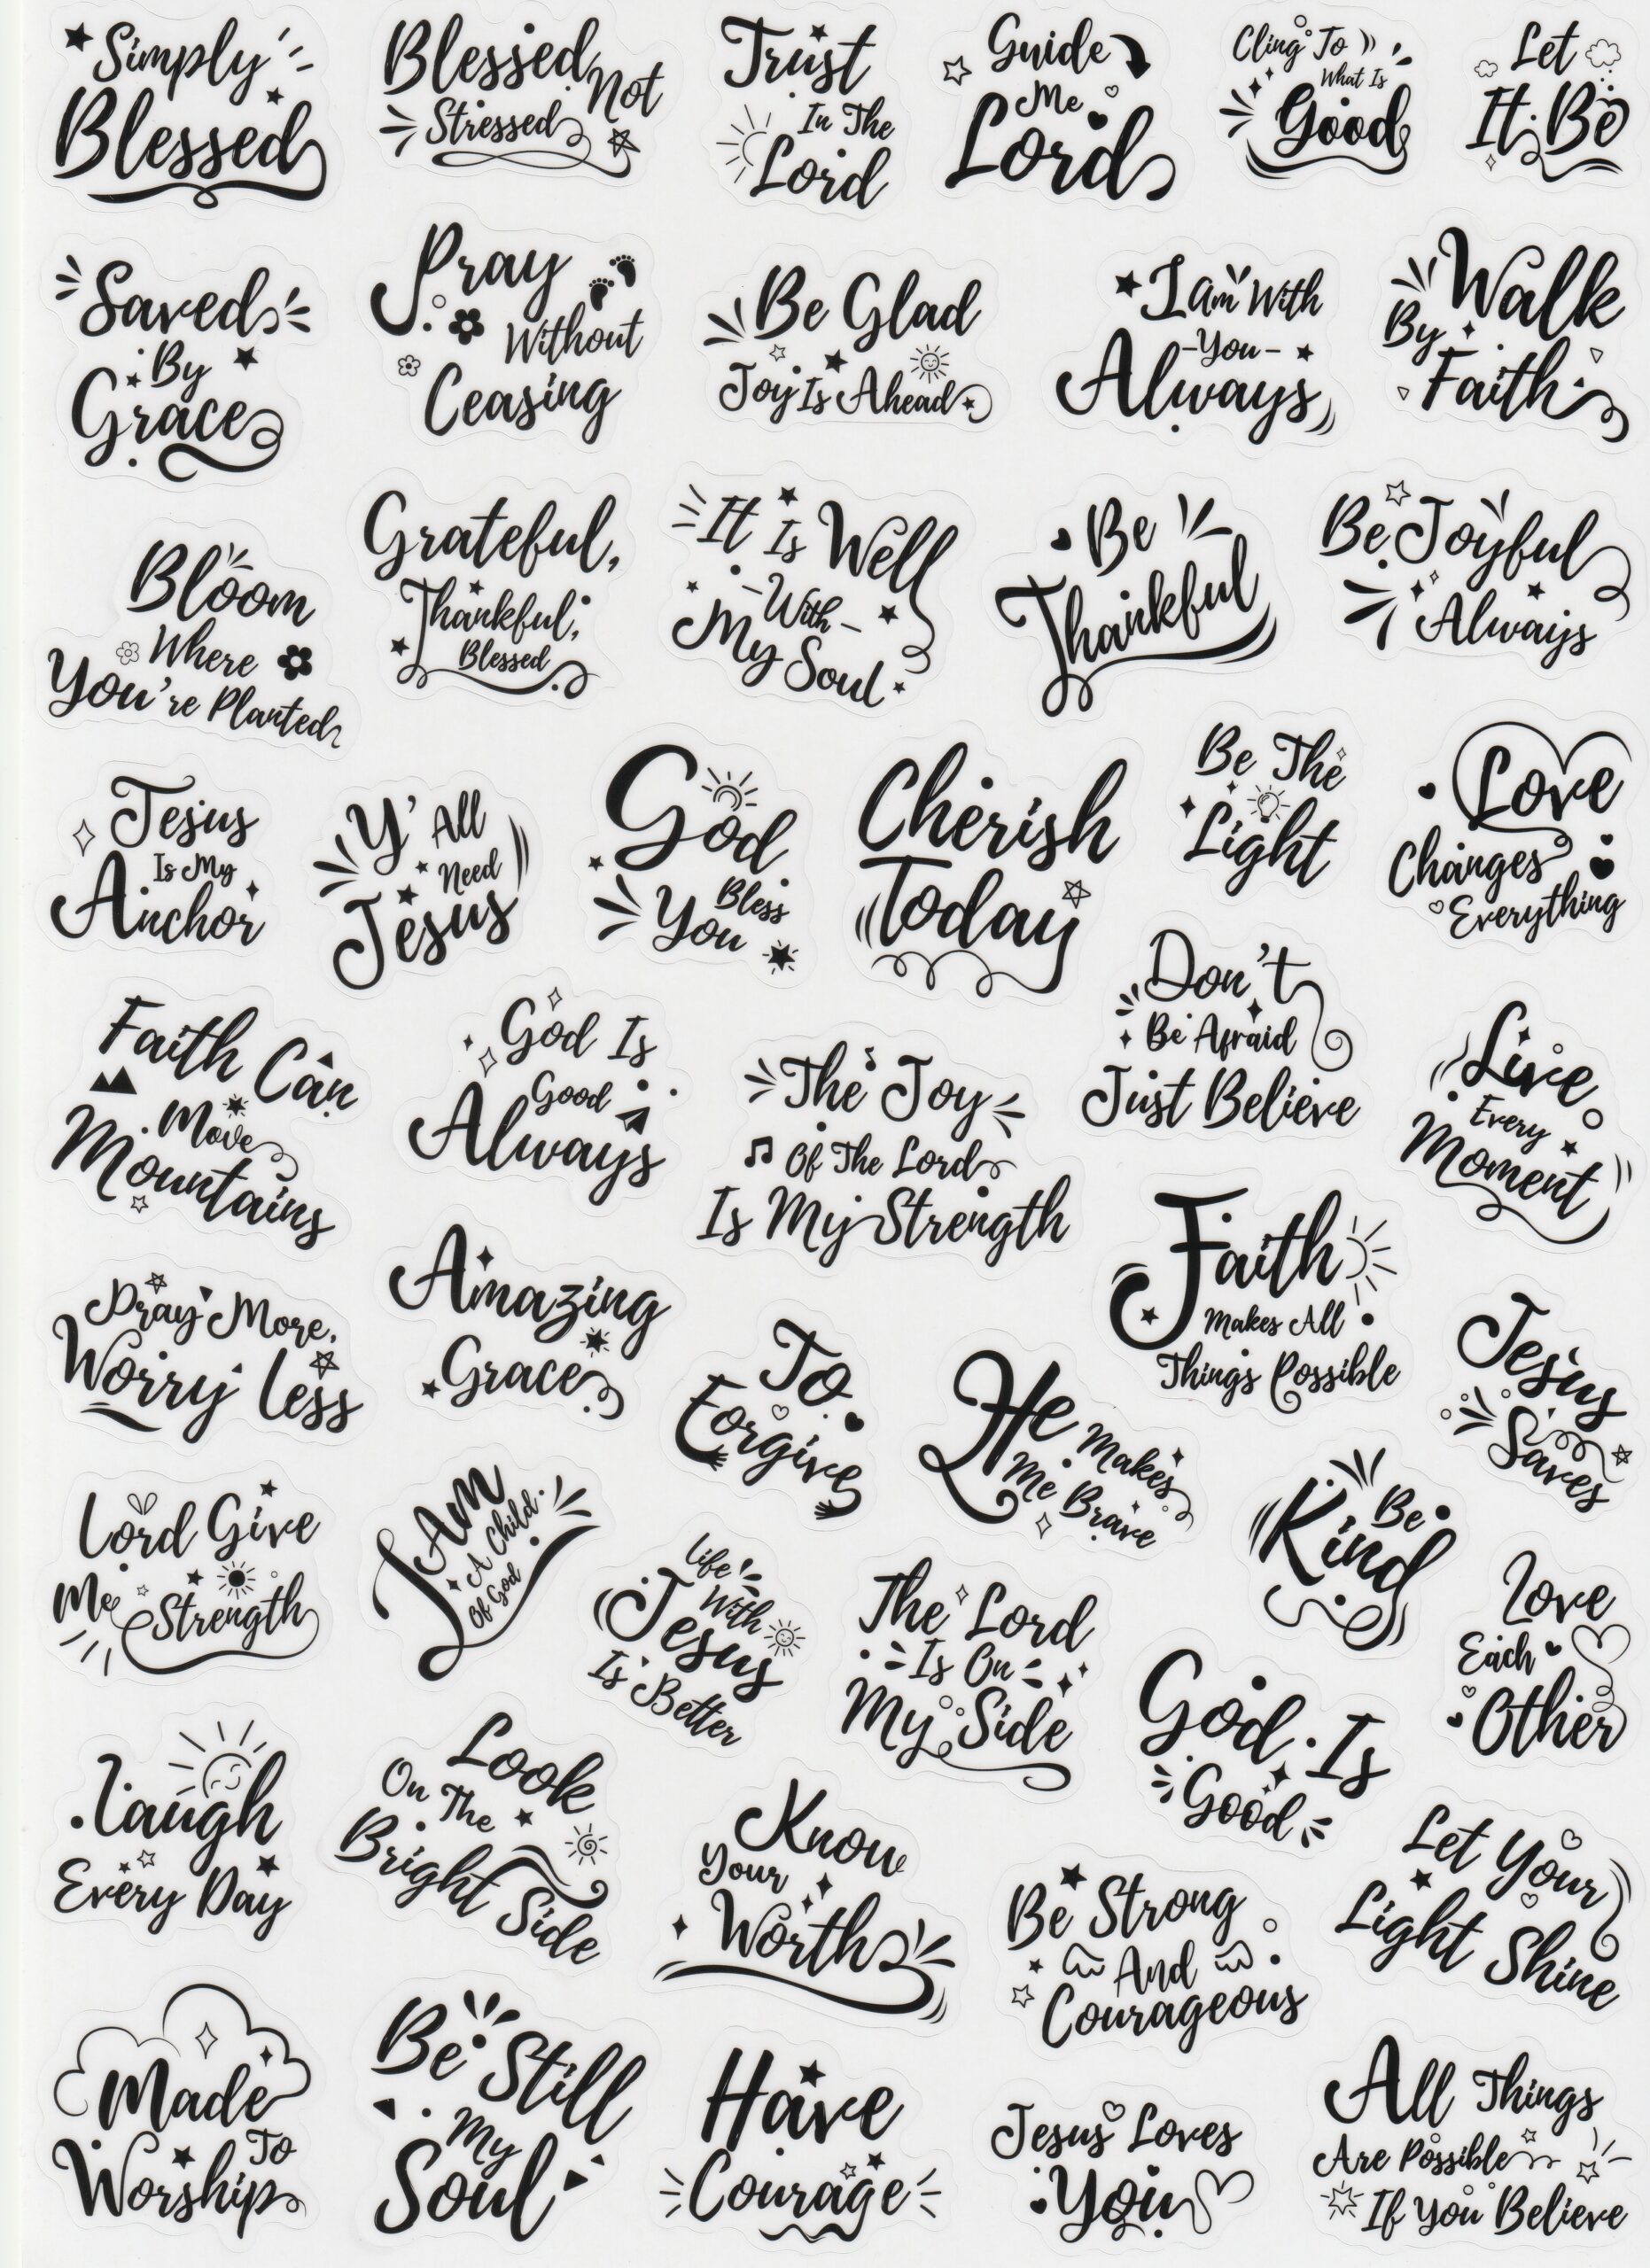 Simply
Blessed
Blessed
Not
Stressed
Trust
In The
Lord
Guide
Me
Lord
Cling To
What Is
Good
Let
It Be
Saved
By
Grace
Pray
Without
Ceasing
Be Glad
Joy Is Ahead
I am With
-You-
Always
Walk
By
Faith
Bloom
Where
You're Planted
Grateful,
Thankful,
Blessed
It Is Well
-With-
My Soul
Be
Thankful
Be Joyful
Always
Jesus
Is My
Anchor
Y' All
Need
Jesus
God
Bless
You
Cherish
Today
Be The
Light
Love
Changes
Everything
Faith Can
Move
Mountains
God Is
Good
Always
The Joy
Of The Lord
Is My Strength
Don't
Be Afraid
Just Believe
Live
Every
Moment
Pray More,
Worry Less
Amazing
Grace
To
Forgive
He Makes
Me Brave
Faith
Makes All
Things Possible
Jesus
Saves
Lord Give
Me Strength
I Am
A Child
Of God
Life
With
Jesus
Is Better
The Lord
Is On
My Side
Be
Kind
Love
Each
Other
God Is
Good
Laugh
Every Day
Look
On The
Bright Side
Know
Your
Worth
Be Strong
And
Courageous
Let Your
Light Shine
Made
To
Worship
Be Still
My
Soul
Have
Courage
Jesus Loves
You
All Things
Are Possible
If You Believe